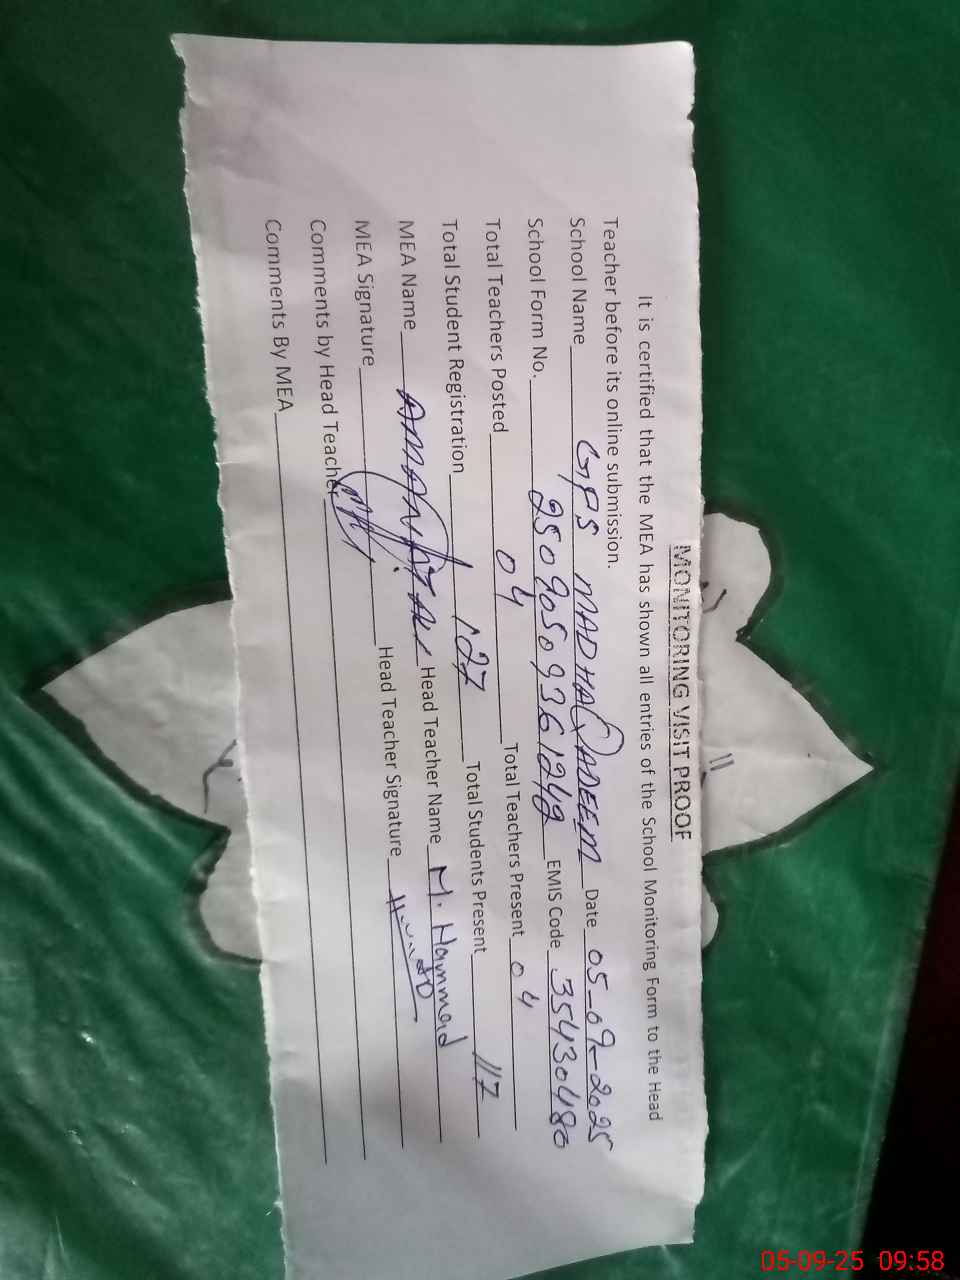 MONITORING VISIT PROOF
It is certified that the MEA has shown all entries of the School Monitoring Form to the Head
Teacher before its online submission.
School Name GPS MADHAQADEEM Date 05-09-2025
School Form No. 25090509361249 EMIS Code 35430480
Total Teachers Posted 04 Total Teachers Present 04
Total Student Registration 127 Total Students Present 117
MEA Name Head Teacher Name M. Hammad
MEA Signature Head Teacher Signature
Comments by Head Teacher
Comments By MEA
05-09-25 09:58